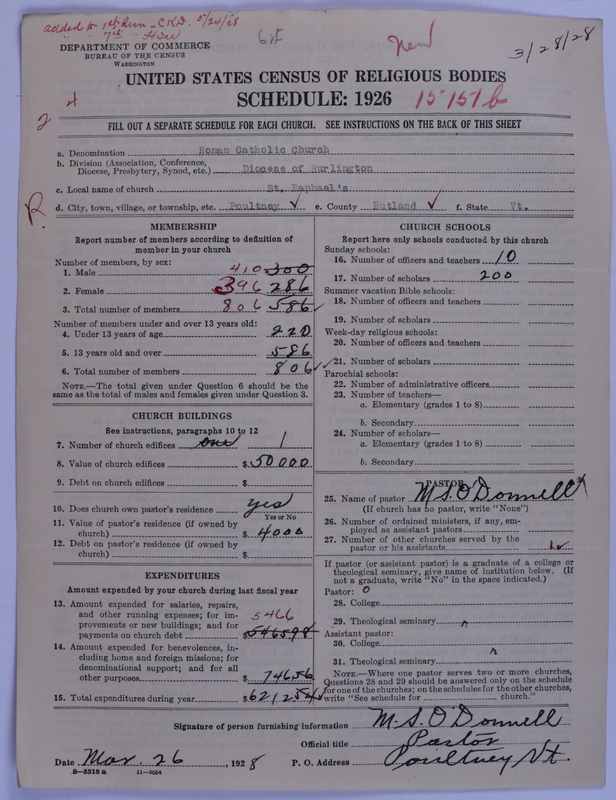 added to 1st Run - C.K.D. 5/24/28
" " 7th "
new
3/28/28
DEPARTMENT OF COMMERCE
BUREAU OF THE CENSUS
WASHINGTON
UNITED STATES CENSUS OF RELIGIOUS BODIES
SCHEDULE: 1926 15-157b
2 4
FILL OUT A SEPARATE SCHEDULE FOR EACH CHURCH. SEE INSTRUCTIONS ON THE BACK OF THIS SHEET
a. Denomination Roman Catholic Church
b. Division (Association, Conference, Diocese, Presbytery, Synod, etc.) Diocese of Burlington
c. Local name of church St. Raphael's
R.
d. City, town, village, or township, etc. Poultney ✓ e. County Rutland ✓ f. State Vt.
MEMBERSHIP
Report number of members according to definition of
member in your church
Number of members, by sex:
1. Male 410 300
2. Female 396 286
3. Total number of members 806 586 ✓
Number of members under and over 13 years old:
4. Under 13 years of age 220
5. 13 years old and over 586
6. Total number of members 806 ✓✓
NOTE.—The total given under Question 6 should be the
same as the total of males and females given under Question 3.
CHURCH BUILDINGS
See instructions, paragraphs 10 to 12
7. Number of church edifices one 1
8. Value of church edifices $50000
9. Debt on church edifices $
10. Does church own pastor's residence? yes
Yes or No
11. Value of pastor's residence (if owned by
church) $4000
12. Debt on pastor's residence (if owned by
church) $
EXPENDITURES
Amount expended by your church during last fiscal year
13. Amount expended for salaries, repairs,
and other running expenses; for im-
provements or new buildings; and for
payments on church debt 5466 $546598
14. Amount expended for benevolences, in-
cluding home and foreign missions; for
denominational support; and for all
other purposes $74656
15. Total expenditures during year $621254 ✓
CHURCH SCHOOLS
Report here only schools conducted by this church
Sunday schools:
16. Number of officers and teachers 10
17. Number of scholars 200
Summer vacation Bible schools:
18. Number of officers and teachers
19. Number of scholars
Week-day religious schools:
20. Number of officers and teachers
21. Number of scholars
Parochial schools:
22. Number of administrative officers
23. Number of teachers—
a. Elementary (grades 1 to 8)
b. Secondary
24. Number of scholars—
a. Elementary (grades 1 to 8)
b. Secondary
PASTOR
25. Name of pastor M. S. O'Donnell
(If church has no pastor, write "None")
26. Number of ordained ministers, if any, em-
ployed as assistant pastors
27. Number of other churches served by the
pastor or his assistants 1 ✓
If pastor (or assistant pastor) is a graduate of a college or
theological seminary, give name of institution below. (If
not a graduate, write "No" in the space indicated.)
Pastor: 0
28. College
29. Theological seminary
Assistant pastor:
30. College
31. Theological seminary
NOTE.—Where one pastor serves two or more churches,
Questions 28 and 29 should be answered only on the schedule
for one of the churches; on the schedules for the other churches,
write "See schedule for church."
Signature of person furnishing information M. S. O'Donnell
Official title Pastor
Date Mar. 26, 1928 P. O. Address Poultney Vt.
8—5518 a 11—9024